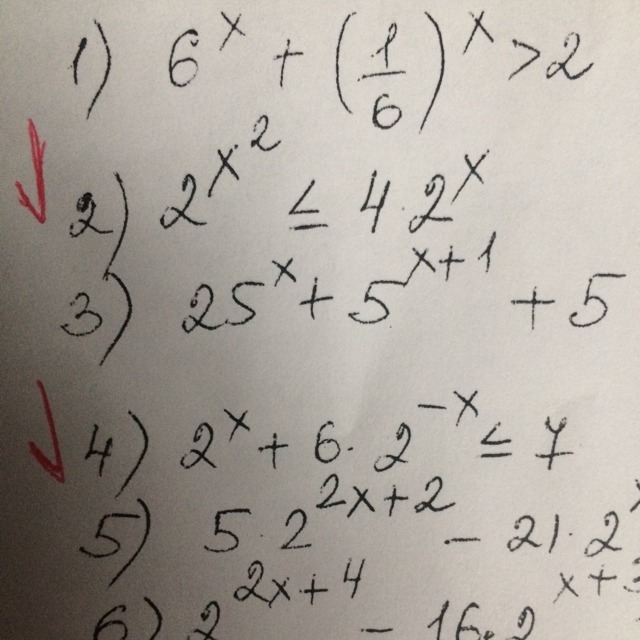 1) 6^x + (1/6)^x > 2
2) 2^{x^2} ≤ 4·2^x
3) 25^x + 5^{x+1} + 5
4) 2^x + 6·2^{-x} ≤ 7
5) 5·2^{2x+2} - 21·2
6) 2^{2x+4} - 16·2^{x+